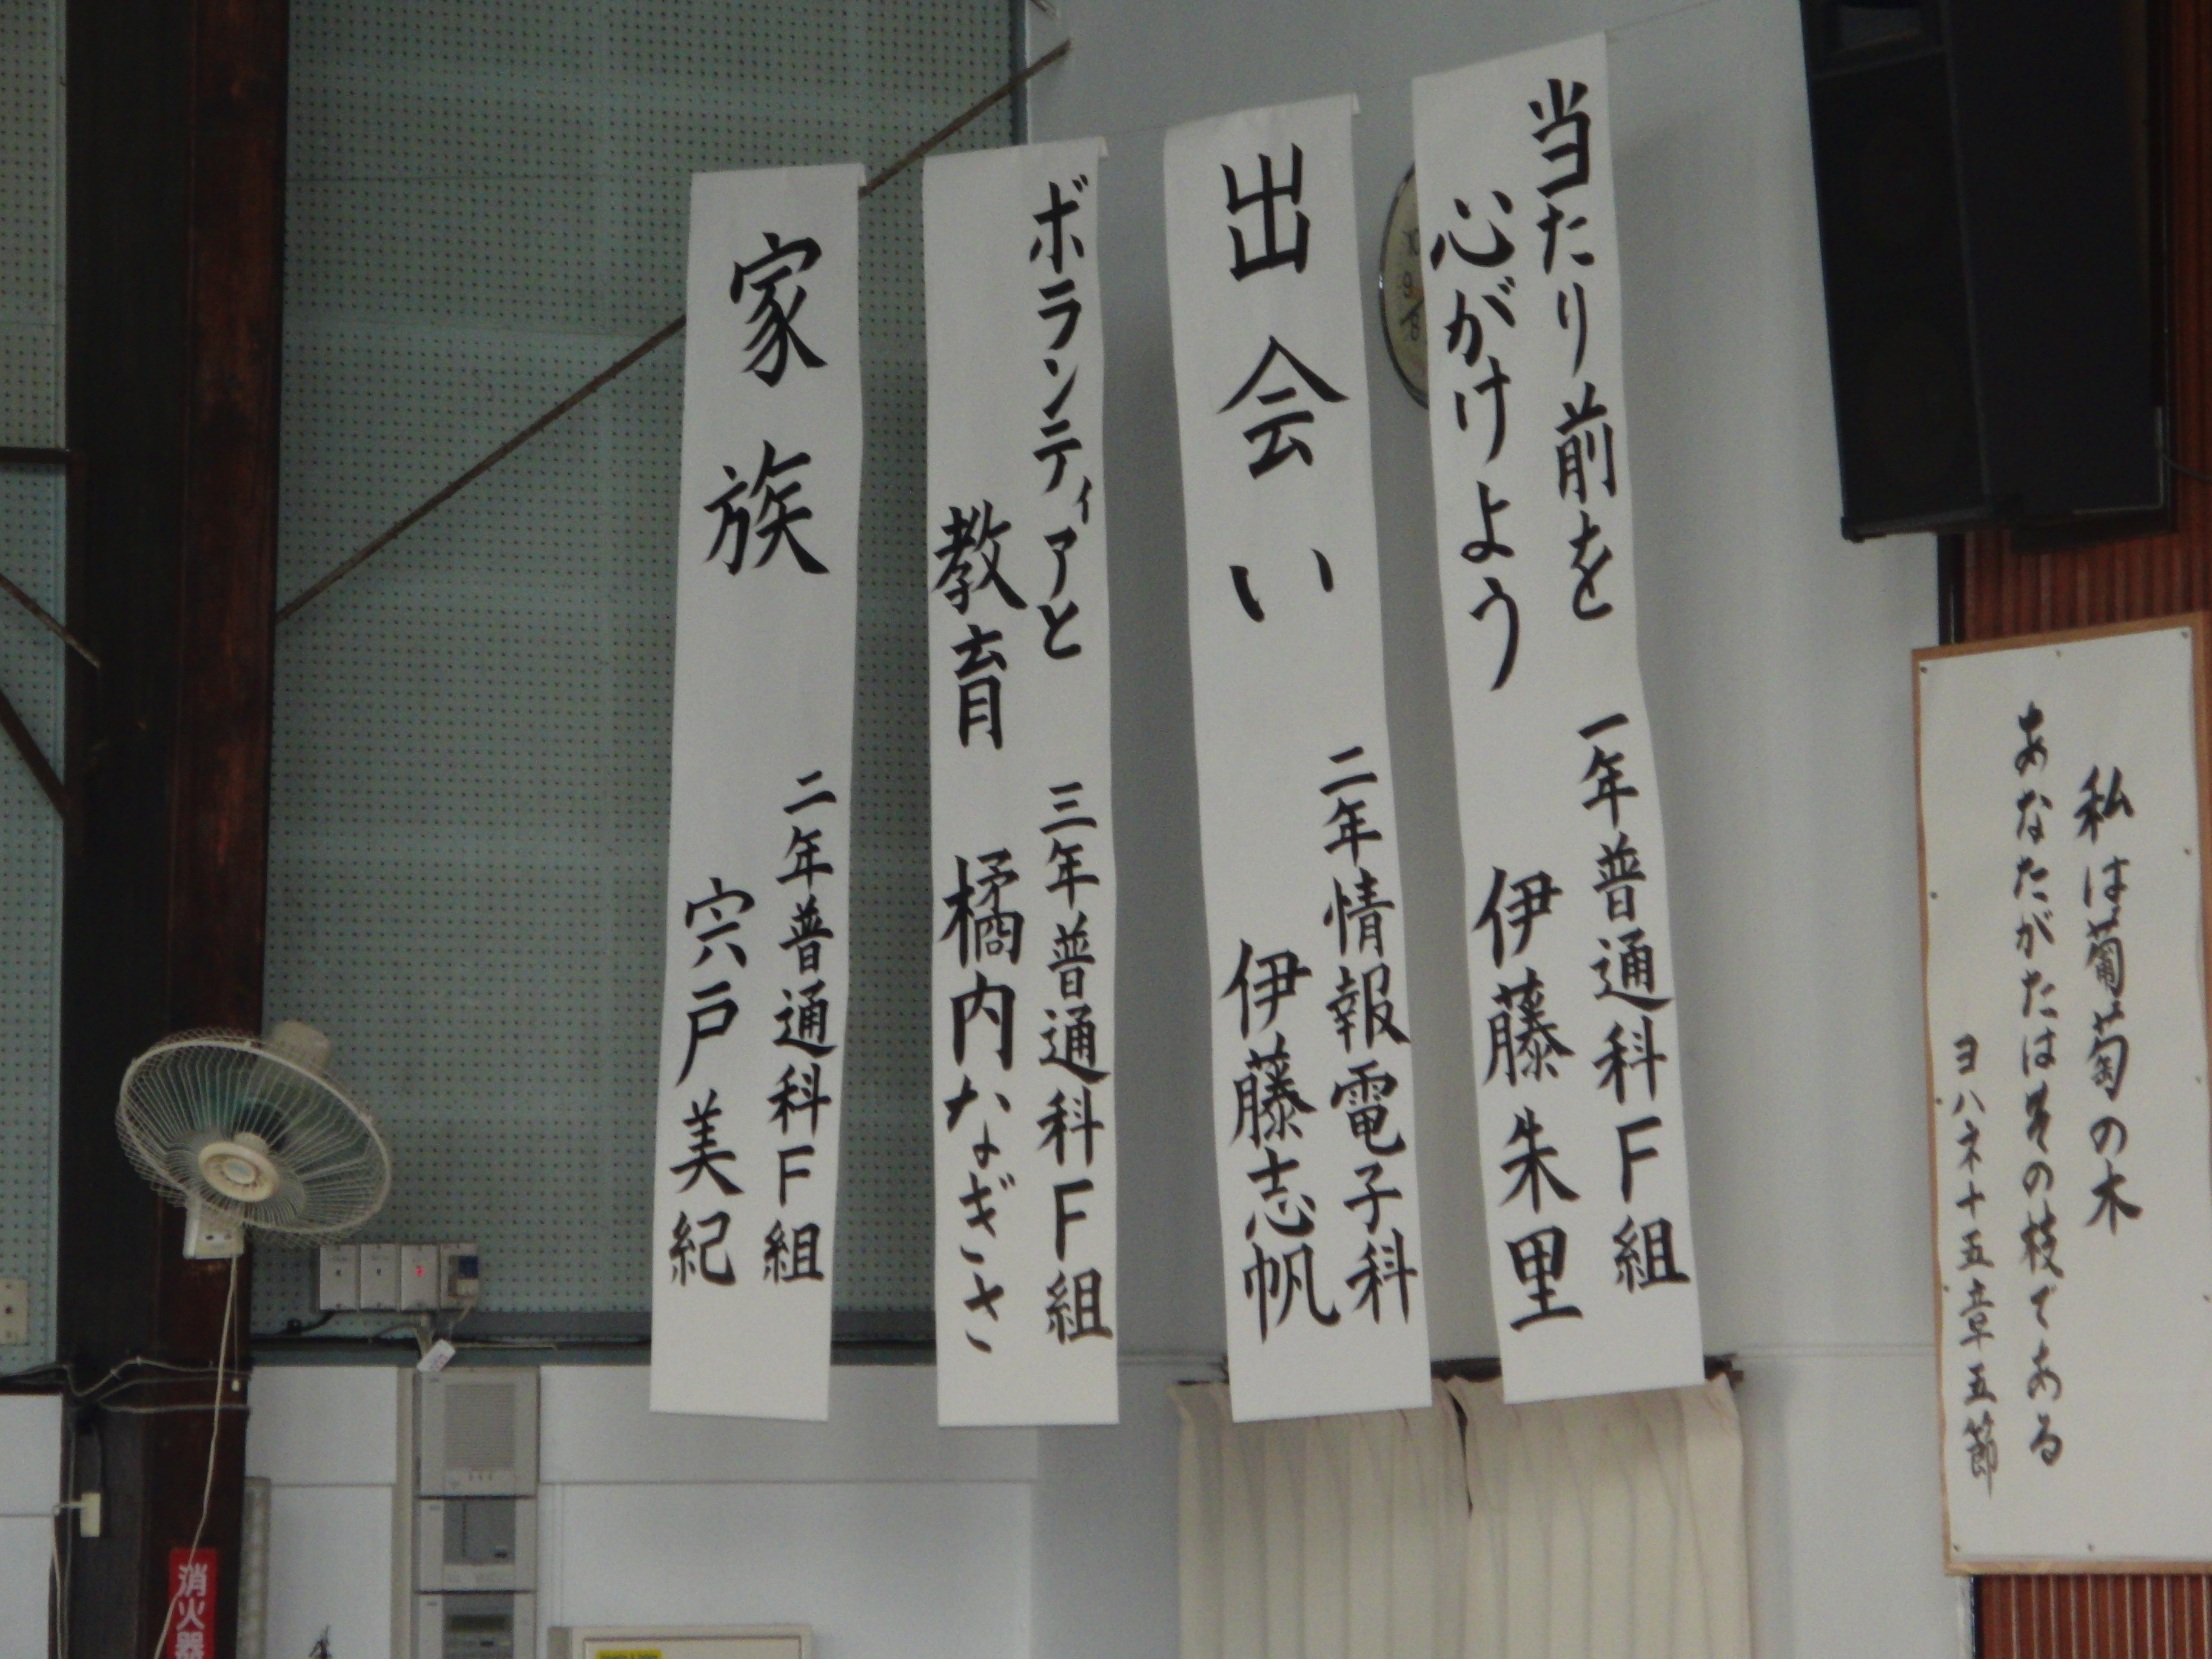 私は葡萄の木
あなたがたはその枝である
ヨハネ十五章五節
当たり前を
心がけよう
一年普通科F組
伊藤朱里
出会い
二年情報電子科
伊藤志帆
ボランティアと
教育
三年普通科F組
橘内なぎさ
家族
二年普通科F組
宍戸美紀
消火器